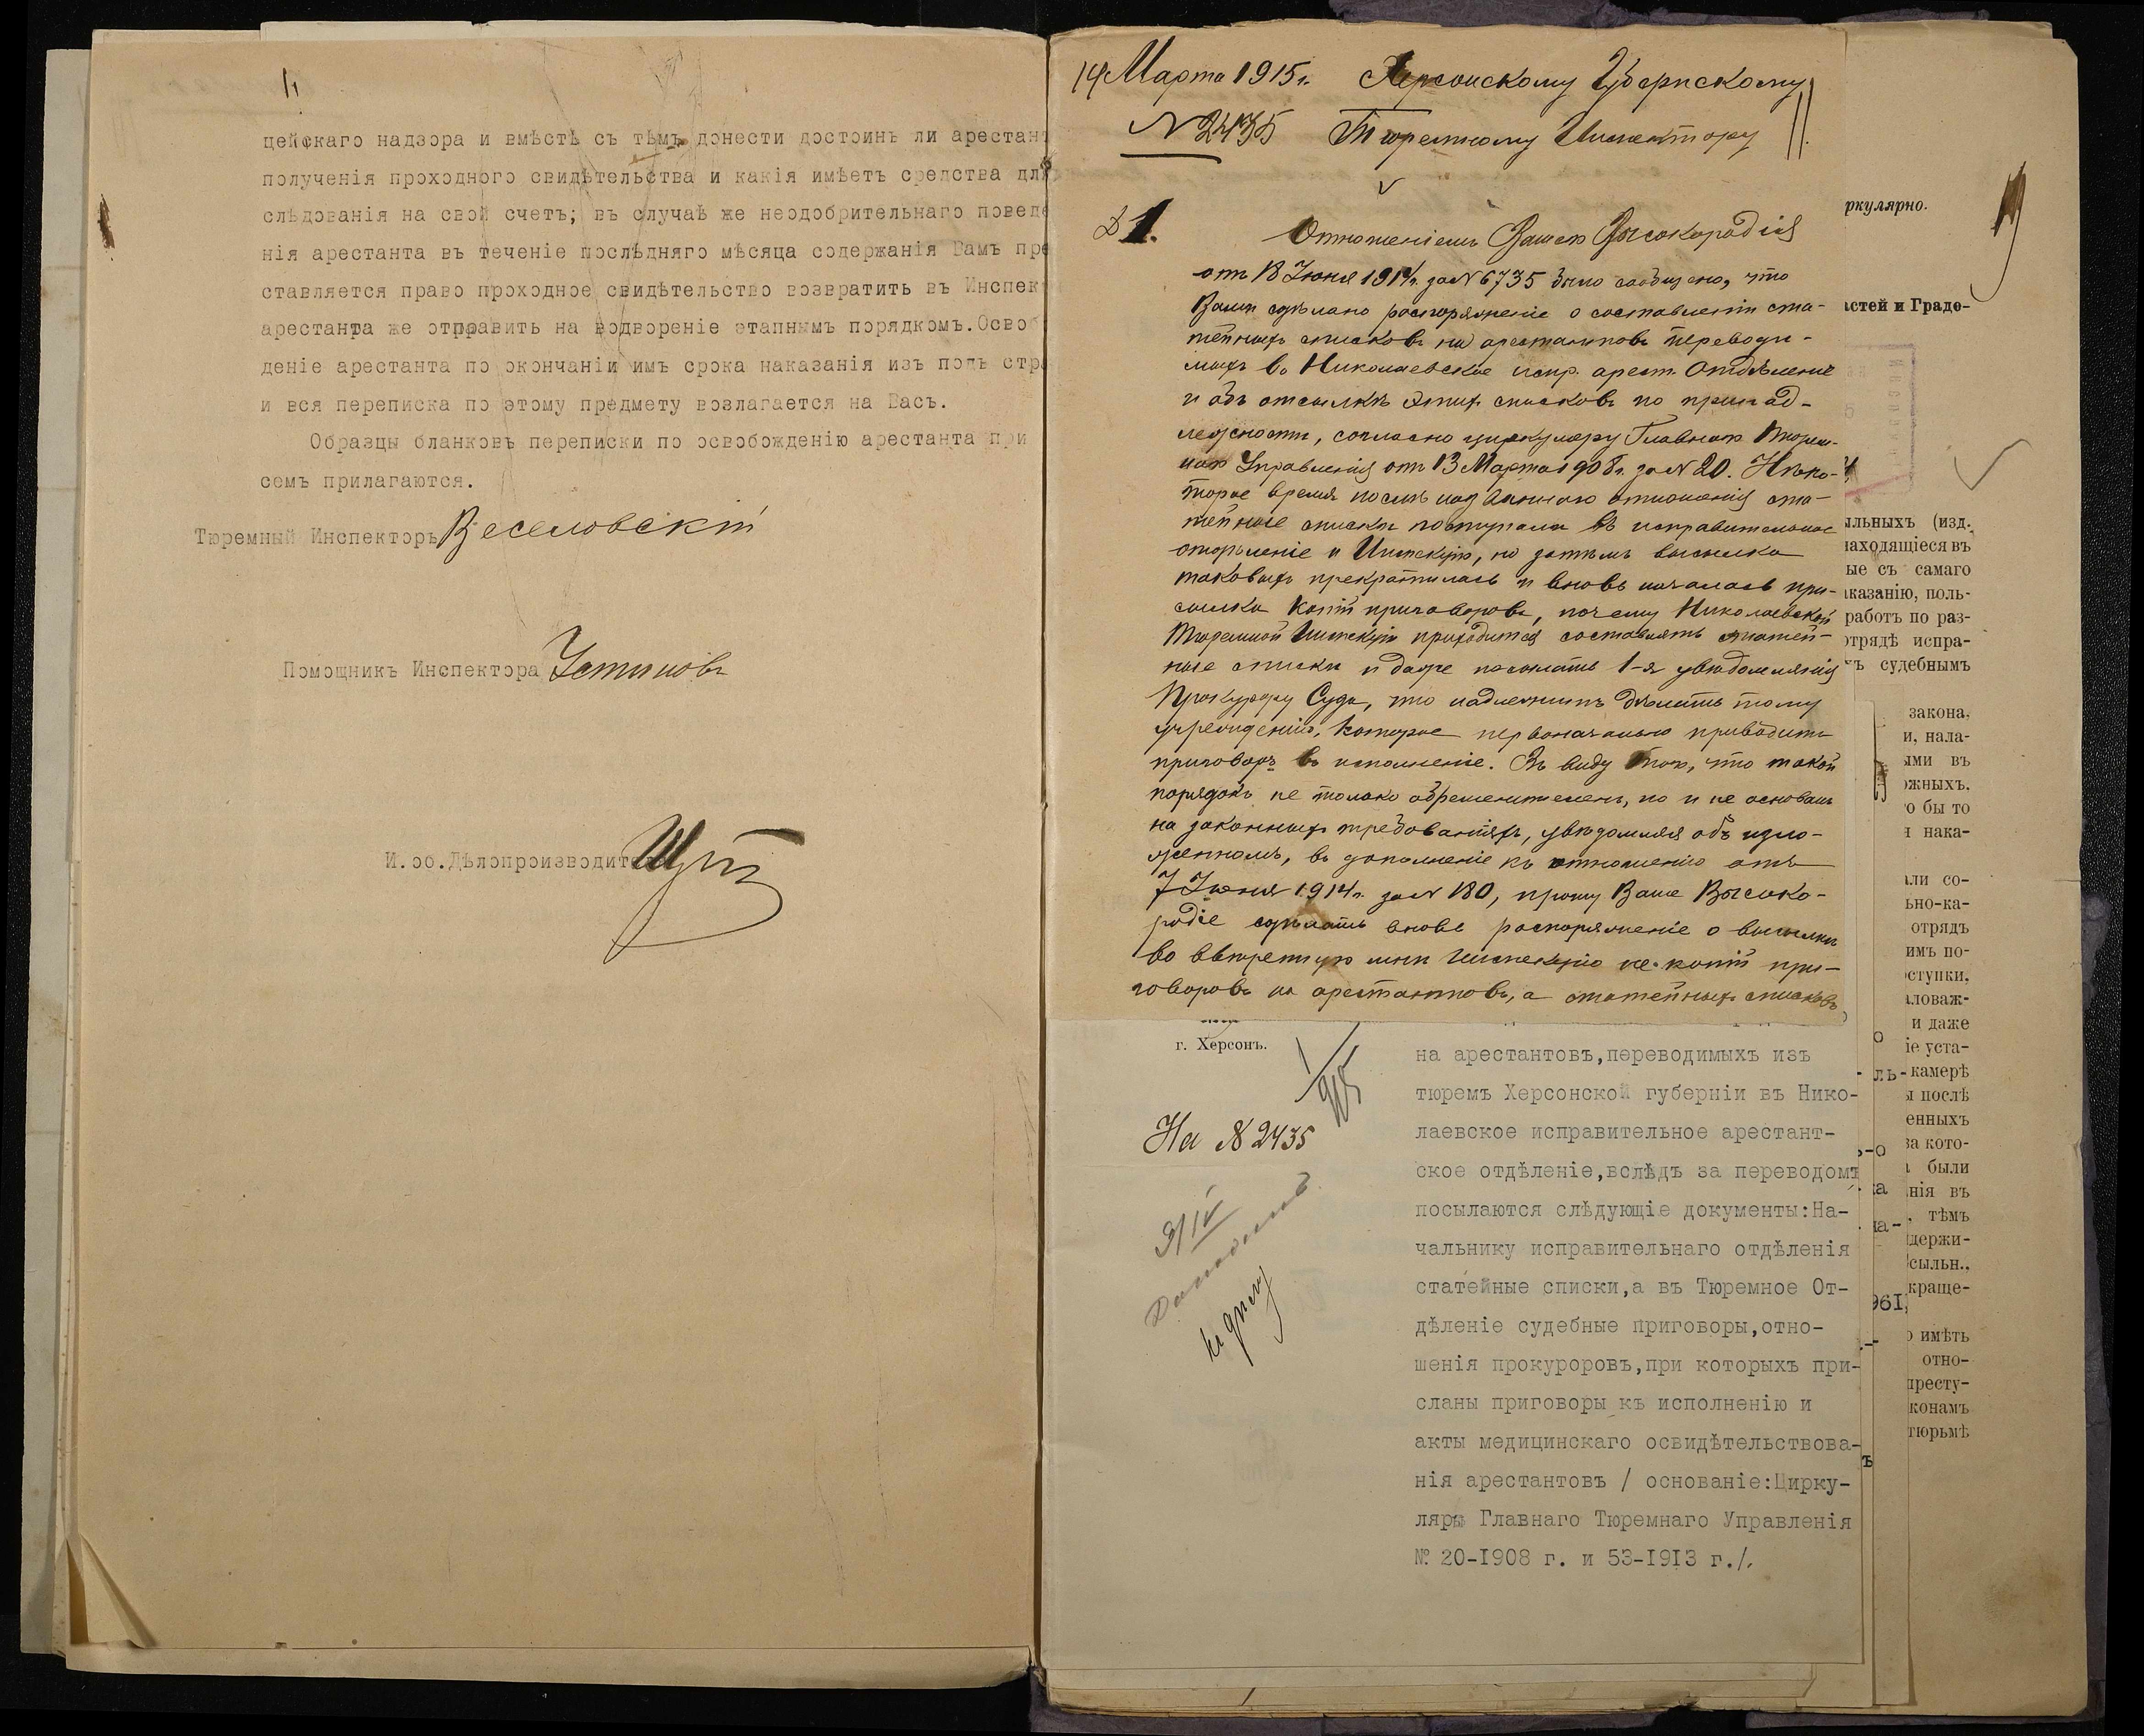 цейскаго надзора и вмѣстѣ съ тѣмъ донести достоинъ ли арестант
полученія проходного свидѣтельства и какія имѣетъ средства для
слѣдованія на свой счетъ; въ случаѣ же неодобрительнаго поведе
нія арестанта въ теченіе послѣдняго мѣсяца содержанія Вамъ пре
ставляется право проходное свидѣтельство возвратить въ Инспек
арестанта же отправить на водвореніе этапнымъ порядкомъ.Освоб
деніе арестанта по окончаніи имъ срока наказанія изъ подъ стра
и вся переписка по этому предмету возлагается на Васъ.
Образцы бланковъ переписки по освобожденію арестанта при
семъ прилагаются.
Тюремный Инспекторъ Веселовскій
Помощникъ Инспектора Устиновъ
И.об.Дѣлопроизводите
14 Марта 1915 г. Херсонскому Губернскому
N 2435 Тюремному Инспектору
1.
Отношеніемъ Вашего Высокородія
отъ 18 Іюня 1914 г. за N 6735 было сообщено, что
Вами сдѣлано распоряженіе о составленіи ста-
тейныхъ списковъ на арестантовъ переводи-
мыхъ въ Николаевское испр. арест. Отдѣленіе
и объ отсылкѣ этихъ списковъ по принад-
лежности, согласно циркуляру Главнаго Тюрем-
наго Управленія отъ 13 Марта 1908 г. за N 20. Нѣко-
торое время послѣ указаннаго отношенія ста-
тейные списки поступали въ исправительное
отдѣленіе и Инспекцію, но затѣмъ высылка
таковыхъ прекратилась и вновь началась при-
сылка копій приговоровъ, почему Николаевской
Тюремной Инспекціи приходится составлять статей-
ные списки и даже посылать 1-я увѣдомленія
Прокурору Суда, что надлежитъ дѣлать тому
учрежденію, которое первоначально приводитъ
приговоръ въ исполненіе. Въ виду того, что такой
порядокъ не только обременителенъ, но и не основанъ
на законныхъ требованіяхъ, увѣдомляя объ изло-
женномъ, въ дополненіе къ отношенію отъ
7 Іюня 1914 г. за N 180, прошу Ваше Высоко-
родіе сдѣлать вновь распоряженіе о высылкѣ
во ввѣренную мнѣ Инспекцію не копій при-
говоровъ на арестантовъ, а статейныхъ списковъ
г. Херсонъ.
На N 2435
9/IV
къ дѣлу
на арестантовъ,переводимыхъ изъ
тюремъ Херсонской губерніи въ Нико-
лаевское исправительное арестант-
ское отдѣленіе,вслѣдъ за переводомъ
посылаются слѣдующіе документы:На-
чальнику исправительнаго отдѣленія
статейные списки,а въ Тюремное От-
дѣленіе судебные приговоры,отно-
шенія прокуроровъ,при которыхъ при-
сланы приговоры къ исполненію и
акты медицинскаго освидѣтельствова-
нія арестантовъ / основаніе:Цирку-
ляры Главнаго Тюремнаго Управленія
№ 20-1908 г. и 53-1913 г./.
ркулярно.
астей и Градо-
ильныхъ (изд.
находящіеся въ
ые съ самаго
аказанію, поль-
работъ по раз-
отрядѣ испра-
ъ судебнымъ
закона,
и, нала-
ыми въ
ожныхъ.
о бы то
и нака-
али со-
ьно-ка-
отрядъ
имъ по-
оступки,
аловаж-
и даже
іе уста-
камерѣ
ы послѣ
енныхъ
за кото-
были
нія въ
, тѣмъ
держи-
сыльн.,
краще-
961
о имѣть
отно-
престу-
конамъ
тюрьмѣ